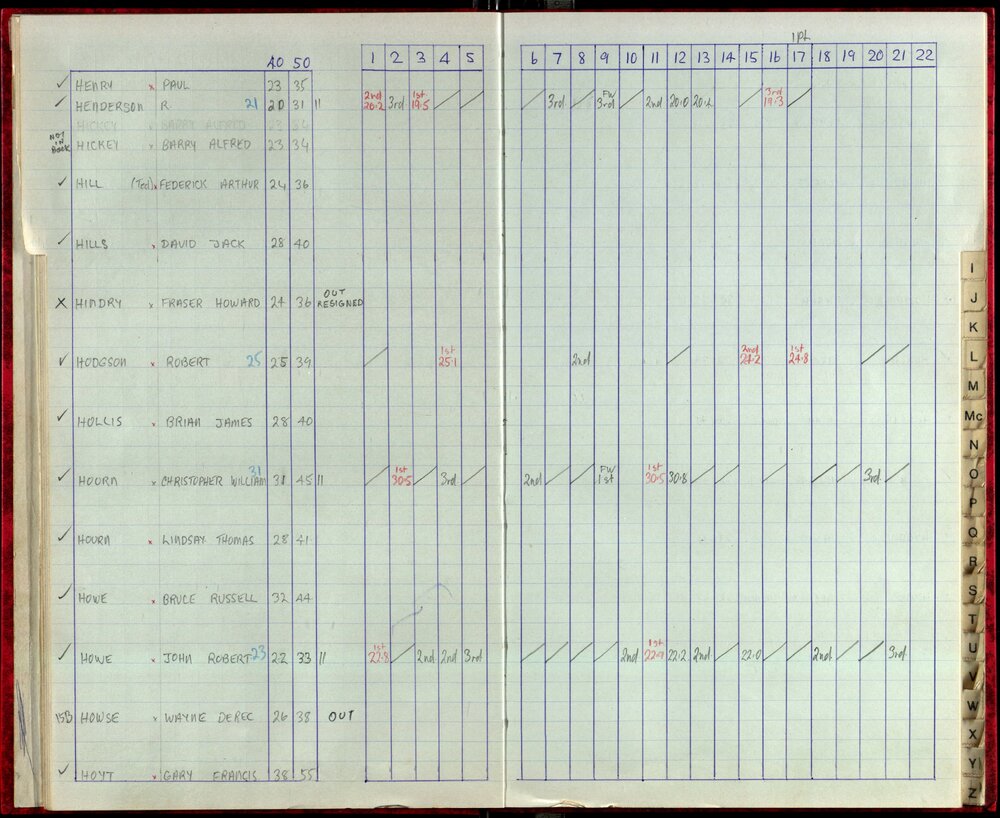 1PL
40 50 1 2 3 4 5 6 7 8 9 10 11 12 13 14 15 16 17 18 19 20 21 22
✓ HENRY x PAUL 23 35
✓ HENDERSON R 21 20 31 11 2nd 20.2 3rd 1st 19.5 / / / 3rd / FW 3rd / 2nd 20.0 20.2 / 3rd 19.3 /
HICKEY BARRY ALFRED 23 34
NOT IN BOOK HICKEY x BARRY ALFRED 23 34
✓ HILL (Ted) x FEDERICK ARTHUR 24 36
✓ HILLS x DAVID JACK 28 40
X HINDRY x FRASER HOWARD 24 36 OUT RESIGNED
✓ HODGSON x ROBERT 25 25 39 / 1st 25.1 2nd / 2nd 24.2 1st 24.8 / /
✓ HOLLIS x BRIAN JAMES 28 40
✓ HOORN x CHRISTOPHER WILLIAM 31 31 45 11 / 1st 30.5 / 3rd / 2nd / / FW 1st / 1st 30.5 30.8 / / / / / / / 3rd /
✓ HOURN x LINDSAY THOMAS 28 41
✓ HOWE x BRUCE RUSSELL 32 44
✓ HOWE x JOHN ROBERT 23 22 33 11 1st 22.8 / 2nd 2nd 3rd / / / / 2nd 1st 22.9 22.2 2nd / 22.0 / / 2nd / / 3rd
15B HOWSE x WAYNE DEREC 26 38 OUT
✓ HOYT x GARY FRANCIS 38 55
I
J
K
L
M
Mc
N
O
P
Q
R
S
T
U
V
W
X
Y
Z